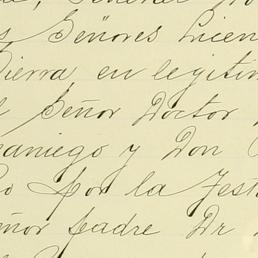 Señores Licen
ierra en legitim
Señor Doctor
aniego y Don
o por la Testa
ñor padre Dr